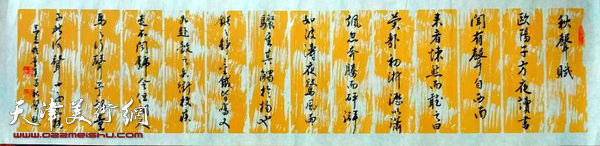 秋聲賦
歐陽子方夜讀書
聞有聲自西南
來者悚然而聽之曰
異哉初淅瀝以瀟
颯忽奔騰而砰湃
如波濤夜驚風雨
驟至其觸於物也
鏦鏦錚錚金鐵皆鳴又
如赴敵之兵銜枚疾
走不聞號令但聞人
馬之行聲予謂童
子此何聲也
天津美術網
www.022meishu.com